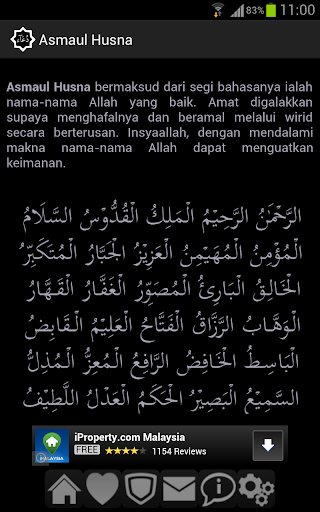 83% 11:00
Asmaul Husna
Asmaul Husna bermaksud dari segi bahasanya ialah
nama-nama Allah yang baik. Amat digalakkan
supaya menghafalnya dan beramal melalui wirid
secara berterusan. Insyaallah, dengan mendalami
makna nama-nama Allah dapat menguatkan
keimanan.
الرَّحْمَٰنُ الرَّحِيْمُ الْمَلِكُ الْقُدُّوْسُ السَّلَامُ
الْمُؤْمِنُ الْمُهَيْمِنُ الْعَزِيْزُ الْجَبَّارُ الْمُتَكَبِّرُ
الْخَالِقُ الْبَارِئُ الْمُصَوِّرُ الْغَفَّارُ الْقَهَّارُ
الْوَهَّابُ الرَّزَّاقُ الْفَتَّاحُ الْعَلِيْمُ الْقَابِضُ
الْبَاسِطُ الْخَافِضُ الرَّافِعُ الْمُعِزُّ الْمُذِلُّ
السَّمِيْعُ الْبَصِيْرُ الْحَكَمُ الْعَدْلُ اللَّطِيْفُ
iProperty.com Malaysia
FREE 1154 Reviews